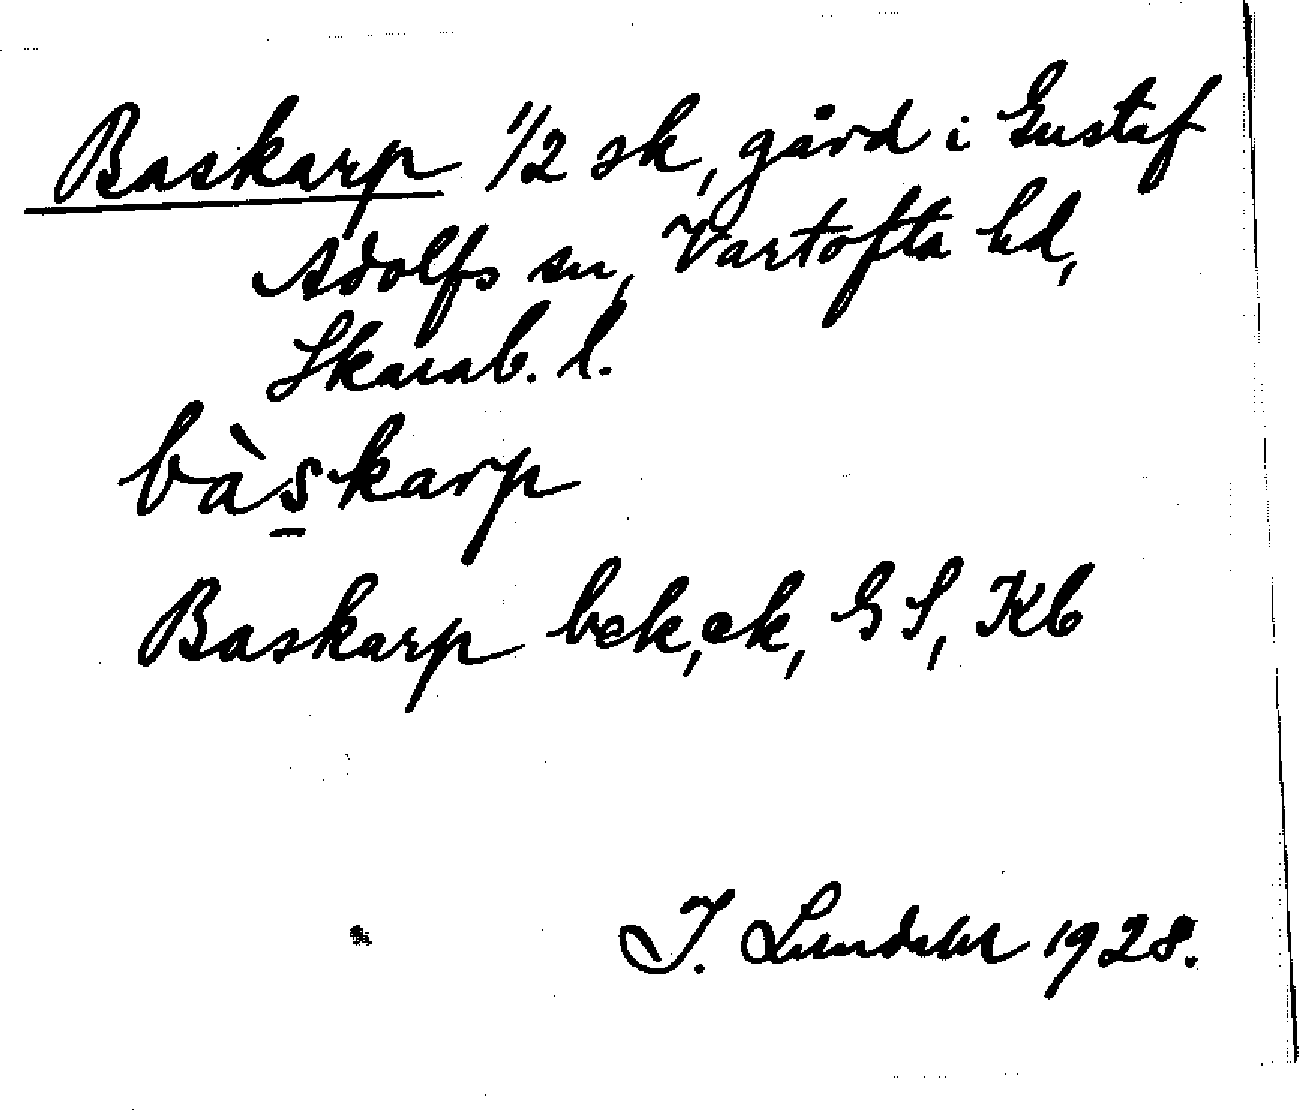 Baskarp 1/2 sk, gård i Gustaf
Adolfs sn, Vartofta hd,
Skarab. l.
bàs̱karp
Baskarp bek, ek, GS, Kb
I. Lundahl 1928.